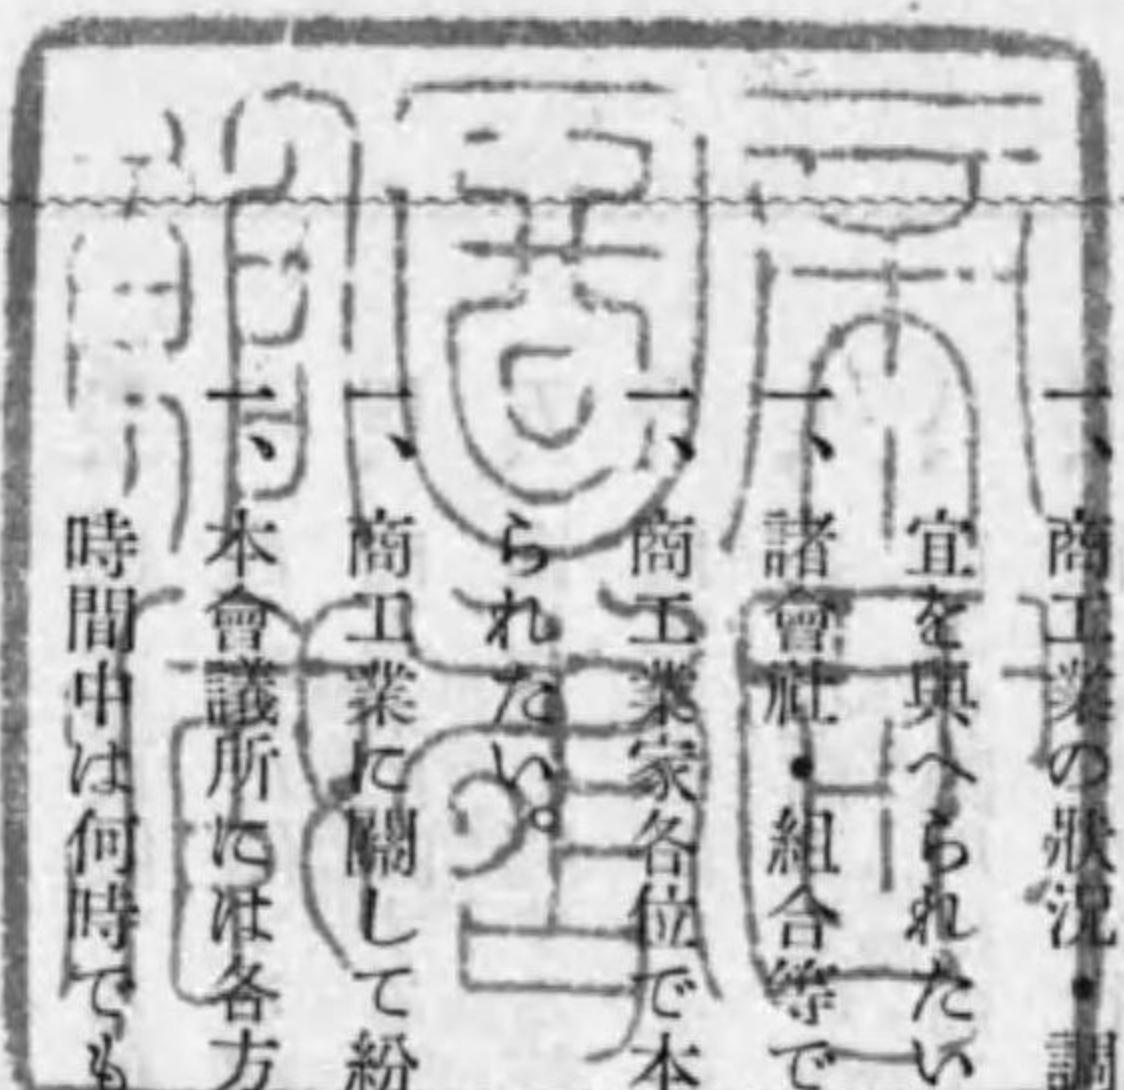 一、商工業の狀況・調
宜を與へられたい
一、諸會社・組合等で
一、商工業家各位で本
られたい。
一、商工業に關して紛
一、本會議所には各方
時間中は何時でも